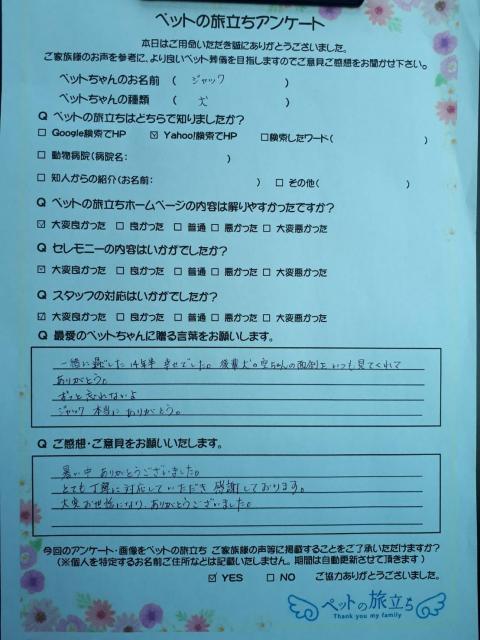 ペットの旅立ちアンケート
本日はご用命いただき誠にありがとうございました。
ご家族様のお声を参考に、より良いペット葬儀を目指しますのでご意見ご感想をお聞かせ下さい。
ペットちゃんのお名前 ( ジャック )
ペットちゃんの種類 ( 犬 )
Q ペットの旅立ちはどちらで知りましたか？
□ Google検索でHP ☑ Yahoo!検索でHP □検索したワード( )
□ 動物病院(病院名: )
□ 知人からの紹介(お名前: ) □ その他( )
Q ペットの旅立ちホームページの内容は解りやすかったですか？
☑ 大変良かった □ 良かった □ 普通 □ 悪かった □ 大変悪かった
Q セレモニーの内容はいかがでしたか？
☑ 大変良かった □ 良かった □ 普通 □ 悪かった □ 大変悪かった
Q スタッフの対応はいかがでしたか？
☑ 大変良かった □ 良かった □ 普通 □ 悪かった □ 大変悪かった
Q 最愛のペットちゃんに贈る言葉をお願いします。
一緒に過ごした 14年半 幸せでした。後輩犬の空ちゃんの面倒をいつも見てくれて
ありがとう。
ずっと忘れないよ
ジャック 本当に ありがとう。
Q ご感想・ご意見をお願いいたします。
暑い中 ありがとうございました。
とても丁寧に対応していただき 感謝しております。
大変お世話になり、ありがとうございました。
今回のアンケート・画像をペットの旅立ち ご家族様の声等に掲載することをご了承いただけますか？
(※個人を特定するお名前ご住所などは記載いたしません。期間は自動更新させて頂きます)
☑ YES □ NO ご協力ありがとうございました。
ペットの旅立ち
Thank you my family